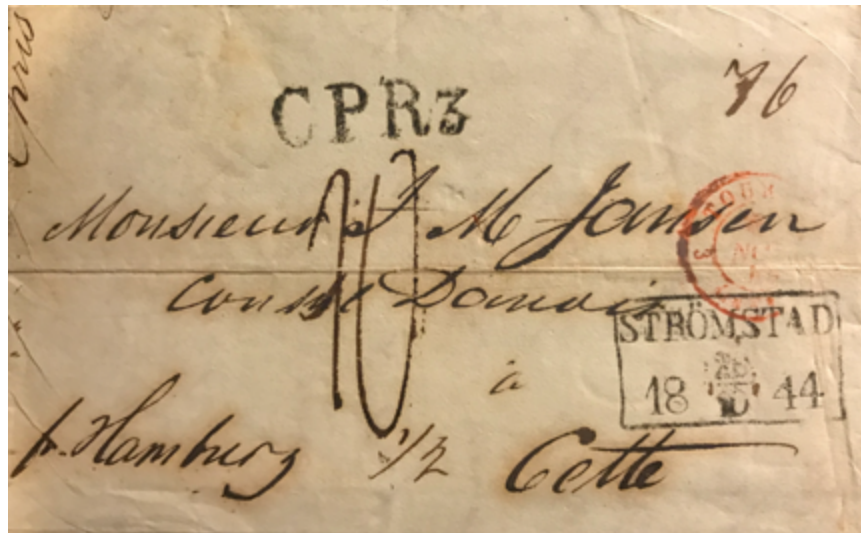 CPR3
76
Monsieur J M Jansen
10
Consul Danois
STRÖMSTAD
18 44
à
p. Hamburg 1/2 Cette